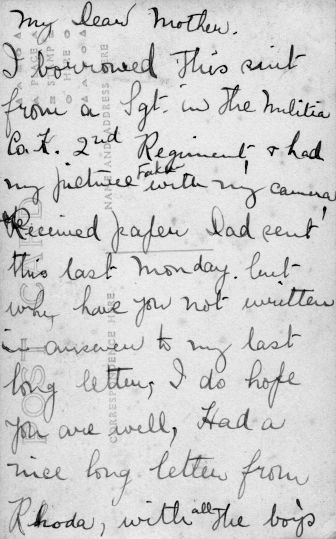 My Dear Mother.
I borrowed this suit
from a Sgt. in the Militia
Co. K. 2nd Regiment & had
my picture taken with my camera
Received paper Dad sent
this last Monday. but
why have you not written
in answer to my last
long letter, I do hope
you are well, Had a
nice long letter from
Rhoda, with all the boys
POST CARD
CORRESPONDENCE HERE
NAME AND ADDRESS HERE
PLACE
STAMP
HERE